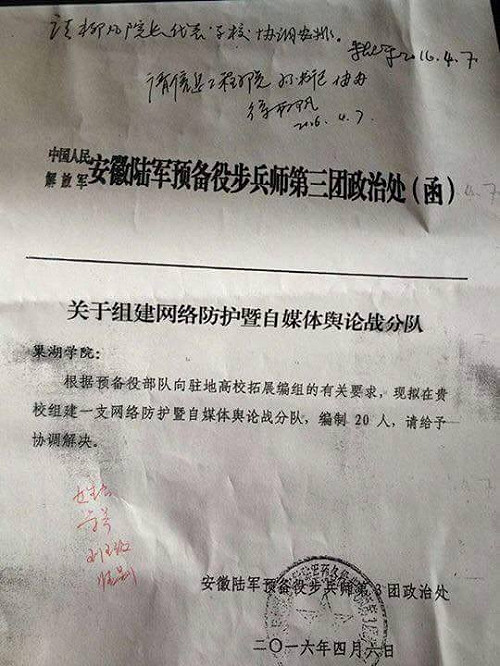 请柳凡院长代表学校协调安排。
2016.4.7
请信息工程学院 书记 协办
2016.4.7
中国人民
解放军
安徽陆军预备役步兵师第三团政治处(函)
关于组建网络防护暨自媒体舆论战分队
巢湖学院:
根据预备役部队向驻地高校拓展编组的有关要求，现拟在贵
校组建一支网络防护暨自媒体舆论战分队，编制 20 人，请给予
协调解决。
安徽陆军预备役步兵师第3团政治处
二〇一六年四月六日